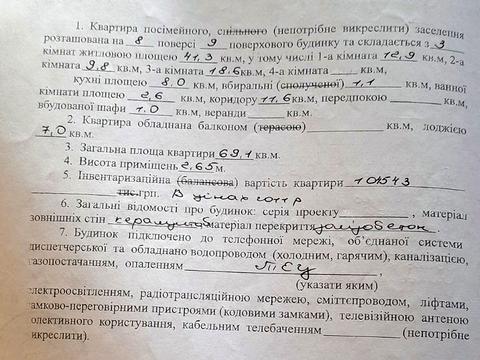 1. Квартира посімейного, спільного (непотрібне викреслити) заселення
розташована на 8 поверсі 9 поверхового будинку та складається з 3
кімнат житловою площею 41,3 кв.м, у тому числі 1-а кімната 12,9 кв.м, 2-а
кімната 9,8 кв.м, 3-а кімната 18.6 кв.м, 4-а кімната кв.м,
кухні площею 8,0 кв.м, вбиральні (сполученої) 1,1 кв.м, ванної
кімнати площею 2,6 кв.м, коридору 11,6 кв.м, передпокою кв.м,
вбудованої шафи 1.0 кв.м, веранди кв.м.
2. Квартира обладнана балконом (терасою) кв.м, лоджією
7,0 кв.м.
3. Загальна площа квартири 69,1 кв.м.
4. Висота приміщень 2,65 м.
5. Інвентаризаційна (балансова) вартість квартири 101543
тис.грн. В цінах
6. Загальні відомості про будинок: серія проекту , матеріал
зовнішніх стін матеріал перекриття залізобетон.
7. Будинок підключено до телефонної мережі, об'єднаної системи
диспетчерської та обладнано водопроводом (холодним, гарячим), каналізацією,
газопостачанням, опаленням ТЕЦ ,
(указати яким)
електроосвітленням, радіотрансляційною мережею, сміттєпроводом, ліфтами,
замково-переговорними пристроями (кодовими замками), телевізійною антеною
колективного користування, кабельним телебаченням (непотрібне
викреслити).